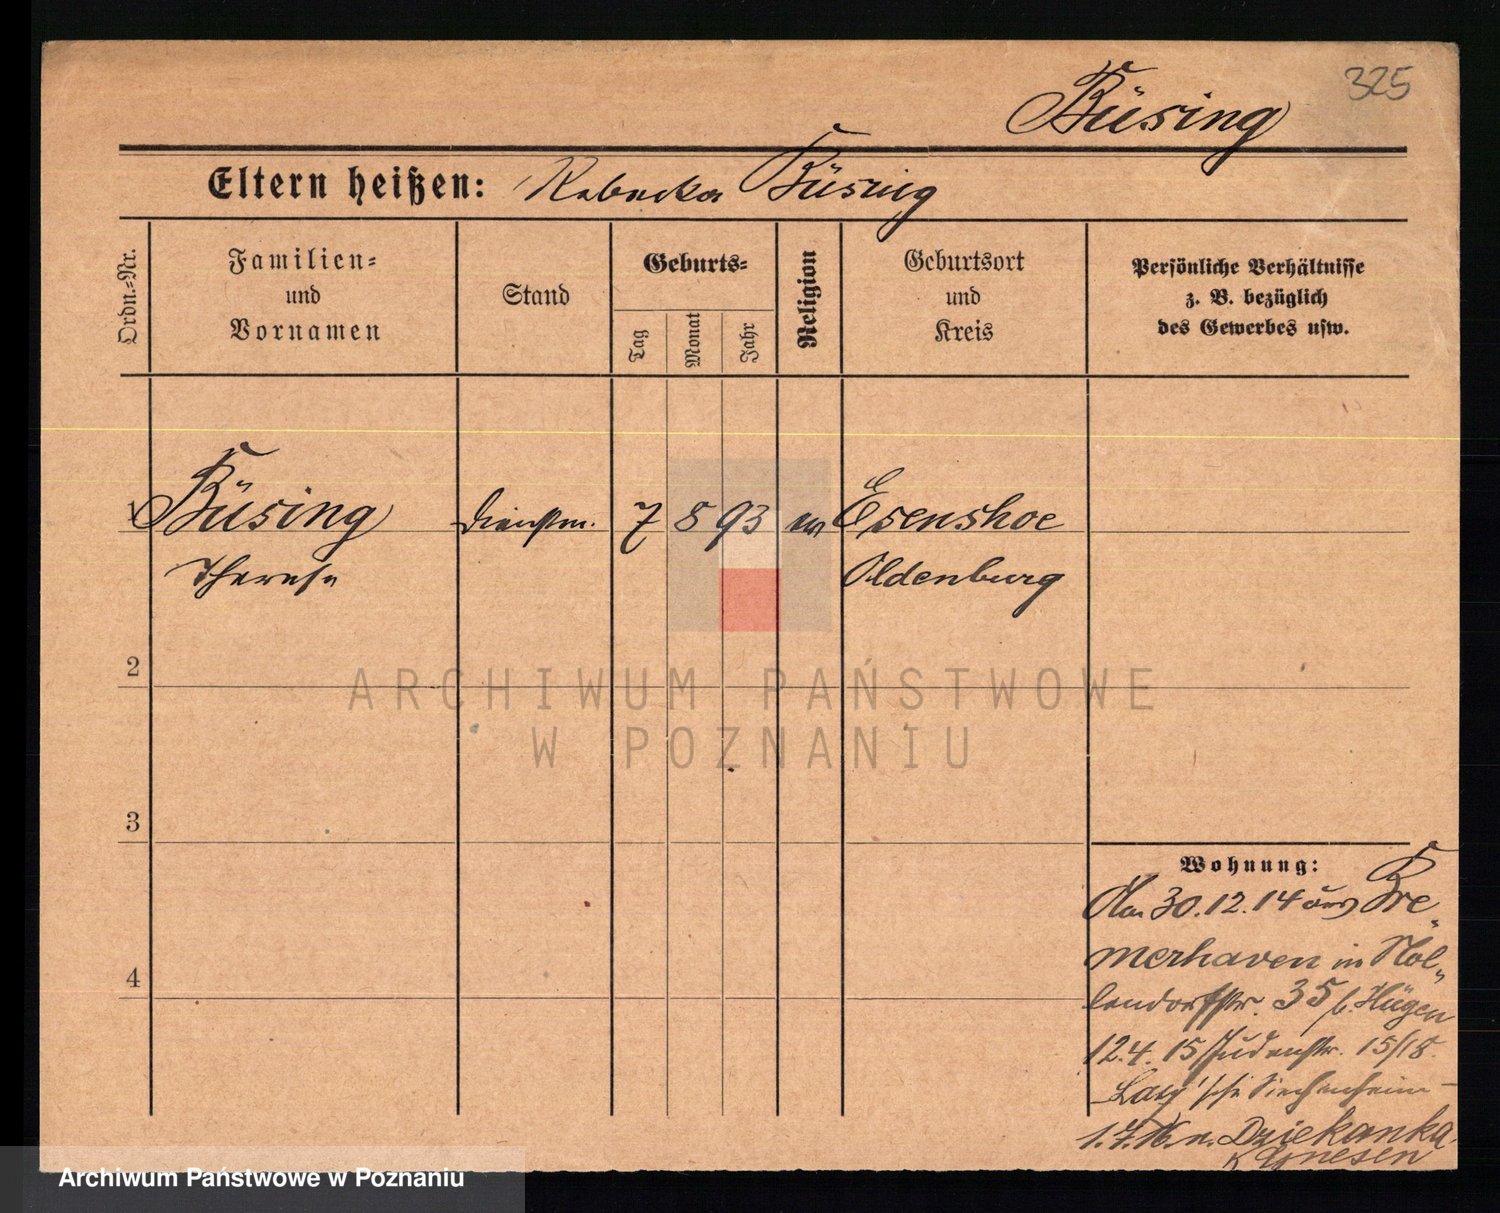 325
Büsing
Eltern heißen: Rebecka Büsing
Ordn.-Nr.
Familien-
und
Vornamen
Stand
Geburts-
Tag
Monat
Jahr
Religion
Geburtsort
und
Kreis
Persönliche Verhältnisse
z. B. bezüglich
des Gewerbes usw.
1 Büsing Dienstm. 7 8 93 ev Esenshoe
Therese Oldenburg
2
3
4
Wohnung:
Am 30.12.14 aus Bre-
merhaven in Möl-
lendorfstr. 35 b. Hügen
12.4.15 Judenstr. 15/18.
Siechenheim
1.7.16 n. Dziekanka
K Gnesen
ARCHIWUM PAŃSTWOWE
W POZNANIU
Archiwum Państwowe w Poznaniu